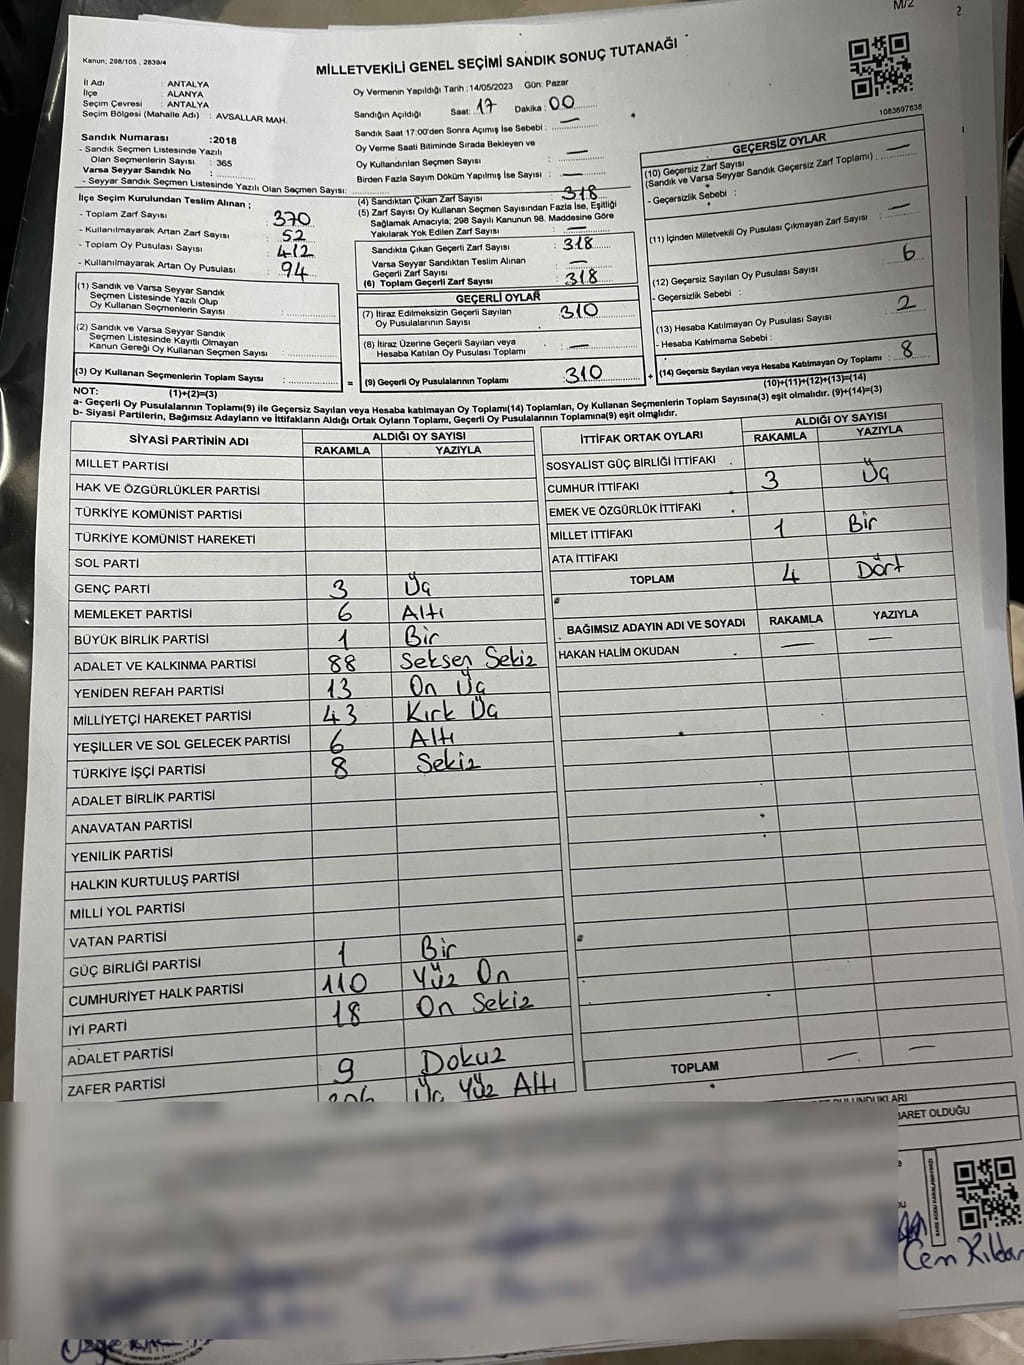 M/2
2
Kanun; 298/105 , 2839/4
MİLLETVEKİLİ GENEL SEÇİMİ SANDIK SONUÇ TUTANAĞI
1083697838
İl Adı : ANTALYA
İlçe : ALANYA
Seçim Çevresi : ANTALYA
Seçim Bölgesi (Mahalle Adı) : AVSALLAR MAH.
Sandık Numarası :2018
- Sandık Seçmen Listesinde Yazılı
Olan Seçmenlerin Sayısı : 365
Varsa Seyyar Sandık No :
- Seyyar Sandık Seçmen Listesinde Yazılı Olan Seçmen Sayısı:
Oy Vermenin Yapıldığı Tarih :14/05/2023 Gün: Pazar
Sandığın Açıldığı Saat: 17 Dakika : 00
Sandık Saat 17:00'den Sonra Açımış İse Sebebi : —
Oy Verme Saati Bitiminde Sırada Bekleyen ve
Oy Kullandırılan Seçmen Sayısı : —
Birden Fazla Sayım Döküm Yapılmış İse Sayısı : —
İlçe Seçim Kurulundan Teslim Alınan ;
- Toplam Zarf Sayısı : 370
- Kullanılmayarak Artan Zarf Sayısı : 52
- Toplam Oy Pusulası Sayısı : 412
- Kullanılmayarak Artan Oy Pusulası : 94
(1) Sandık ve Varsa Seyyar Sandık
Seçmen Listesinde Yazılı Olup
Oy Kullanan Seçmenlerin Sayısı :
(2) Sandık ve Varsa Seyyar Sandık
Seçmen Listesinde Kayıtlı Olmayan
Kanun Gereği Oy Kullanan Seçmen Sayısı :
(3) Oy Kullanan Seçmenlerin Toplam Sayısı :
(1)+(2)=(3)
(4) Sandıktan Çıkan Zarf Sayısı : 318
(5) Zarf Sayısı Oy Kullanan Seçmen Sayısından Fazla İse, Eşitliği
Sağlamak Amacıyla; 298 Sayılı Kanunun 98. Maddesine Göre
Yakılarak Yok Edilen Zarf Sayısı : —
Sandıkta Çıkan Geçerli Zarf Sayısı : 318
Varsa Seyyar Sandıktan Teslim Alınan
Geçerli Zarf Sayısı : —
(6) Toplam Geçerli Zarf Sayısı : 318
GEÇERLİ OYLAR
(7) İtiraz Edilmeksizin Geçerli Sayılan
Oy Pusulalarının Sayısı : 310
(8) İtiraz Üzerine Geçerli Sayılan veya
Hesaba Katılan Oy Pusulası Toplamı : —
= (9) Geçerli Oy Pusulalarının Toplamı : 310
GEÇERSİZ OYLAR
(10) Geçersiz Zarf Sayısı
(Sandık ve Varsa Seyyar Sandık Geçersiz Zarf Toplamı) : —
- Geçersizlik Sebebi :
(11) İçinden Milletvekili Oy Pusulası Çıkmayan Zarf Sayısı : —
(12) Geçersiz Sayılan Oy Pusulası Sayısı : 6
- Geçersizlik Sebebi :
(13) Hesaba Katılmayan Oy Pusulası Sayısı : 2
- Hesaba Katılmama Sebebi :
+ (14) Geçersiz Sayılan veya Hesaba Katılmayan Oy Toplamı : 8
(10)+(11)+(12)+(13)=(14)
NOT:
a- Geçerli Oy Pusulalarının Toplamı(9) ile Geçersiz Sayılan veya Hesaba katılmayan Oy Toplamı(14) Toplamları, Oy Kullanan Seçmenlerin Toplam Sayısına(3) eşit olmalıdır. (9)+(14)=(3)
b- Siyasi Partilerin, Bağımsız Adayların ve İttifakların Aldığı Ortak Oyların Toplamı, Geçerli Oy Pusulalarının Toplamına(9) eşit olmalıdır.
SİYASİ PARTİNİN ADI ALDIĞI OY SAYISI
RAKAMLA YAZIYLA
MİLLET PARTİSİ
HAK VE ÖZGÜRLÜKLER PARTİSİ
TÜRKİYE KOMÜNİST PARTİSİ
TÜRKİYE KOMÜNİST HAREKETİ
SOL PARTİ
GENÇ PARTİ 3 Üç
MEMLEKET PARTİSİ 6 Altı
BÜYÜK BİRLİK PARTİSİ 1 Bir
ADALET VE KALKINMA PARTİSİ 88 Seksen Sekiz
YENİDEN REFAH PARTİSİ 13 On Üç
MİLLİYETÇİ HAREKET PARTİSİ 43 Kırk Üç
YEŞİLLER VE SOL GELECEK PARTİSİ 6 Altı
TÜRKİYE İŞÇİ PARTİSİ 8 Sekiz
ADALET BİRLİK PARTİSİ
ANAVATAN PARTİSİ
YENİLİK PARTİSİ
HALKIN KURTULUŞ PARTİSİ
MİLLİ YOL PARTİSİ
VATAN PARTİSİ
GÜÇ BİRLİĞİ PARTİSİ 1 Bir
CUMHURİYET HALK PARTİSİ 110 Yüz On
İYİ PARTİ 18 On Sekiz
ADALET PARTİSİ
ZAFER PARTİSİ 9 Dokuz
306 Üç Yüz Altı
İTTİFAK ORTAK OYLARI ALDIĞI OY SAYISI
RAKAMLA YAZIYLA
SOSYALİST GÜÇ BİRLİĞİ İTTİFAKI
CUMHUR İTTİFAKI 3 Üç
EMEK VE ÖZGÜRLÜK İTTİFAKI
MİLLET İTTİFAKI 1 Bir
ATA İTTİFAKI
TOPLAM 4 Dört
BAĞIMSIZ ADAYIN ADI VE SOYADI RAKAMLA YAZIYLA
HAKAN HALİM OKUDAN — —
TOPLAM — —
BULUNDUKLARI
BARET OLDUĞU
Cem